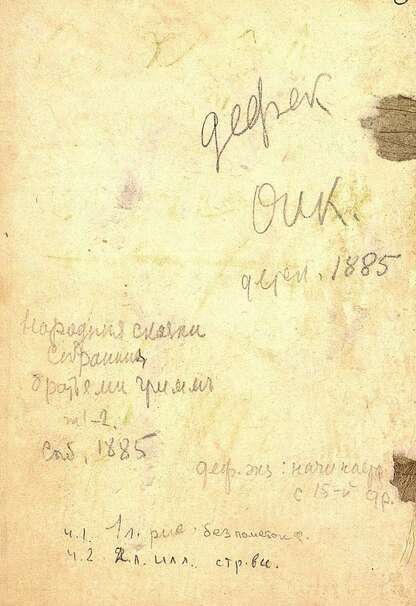 дефек
ОИК.
дефек. 1885
Народныя сказки
собранныя
братьями Гриммъ
т 1-2.
Спб, 1885
деф. экз: начинается
с 15-й
ч.1. 1 л. рис. без
ч.2 л. илл. стр.